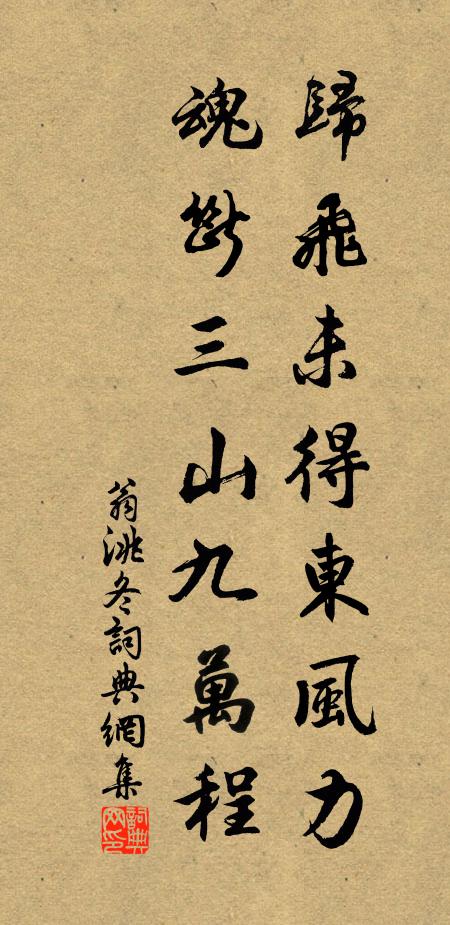 歸飛未得東風力
魂斷三山九萬程
翁洮冬詞典網集
詞典网印